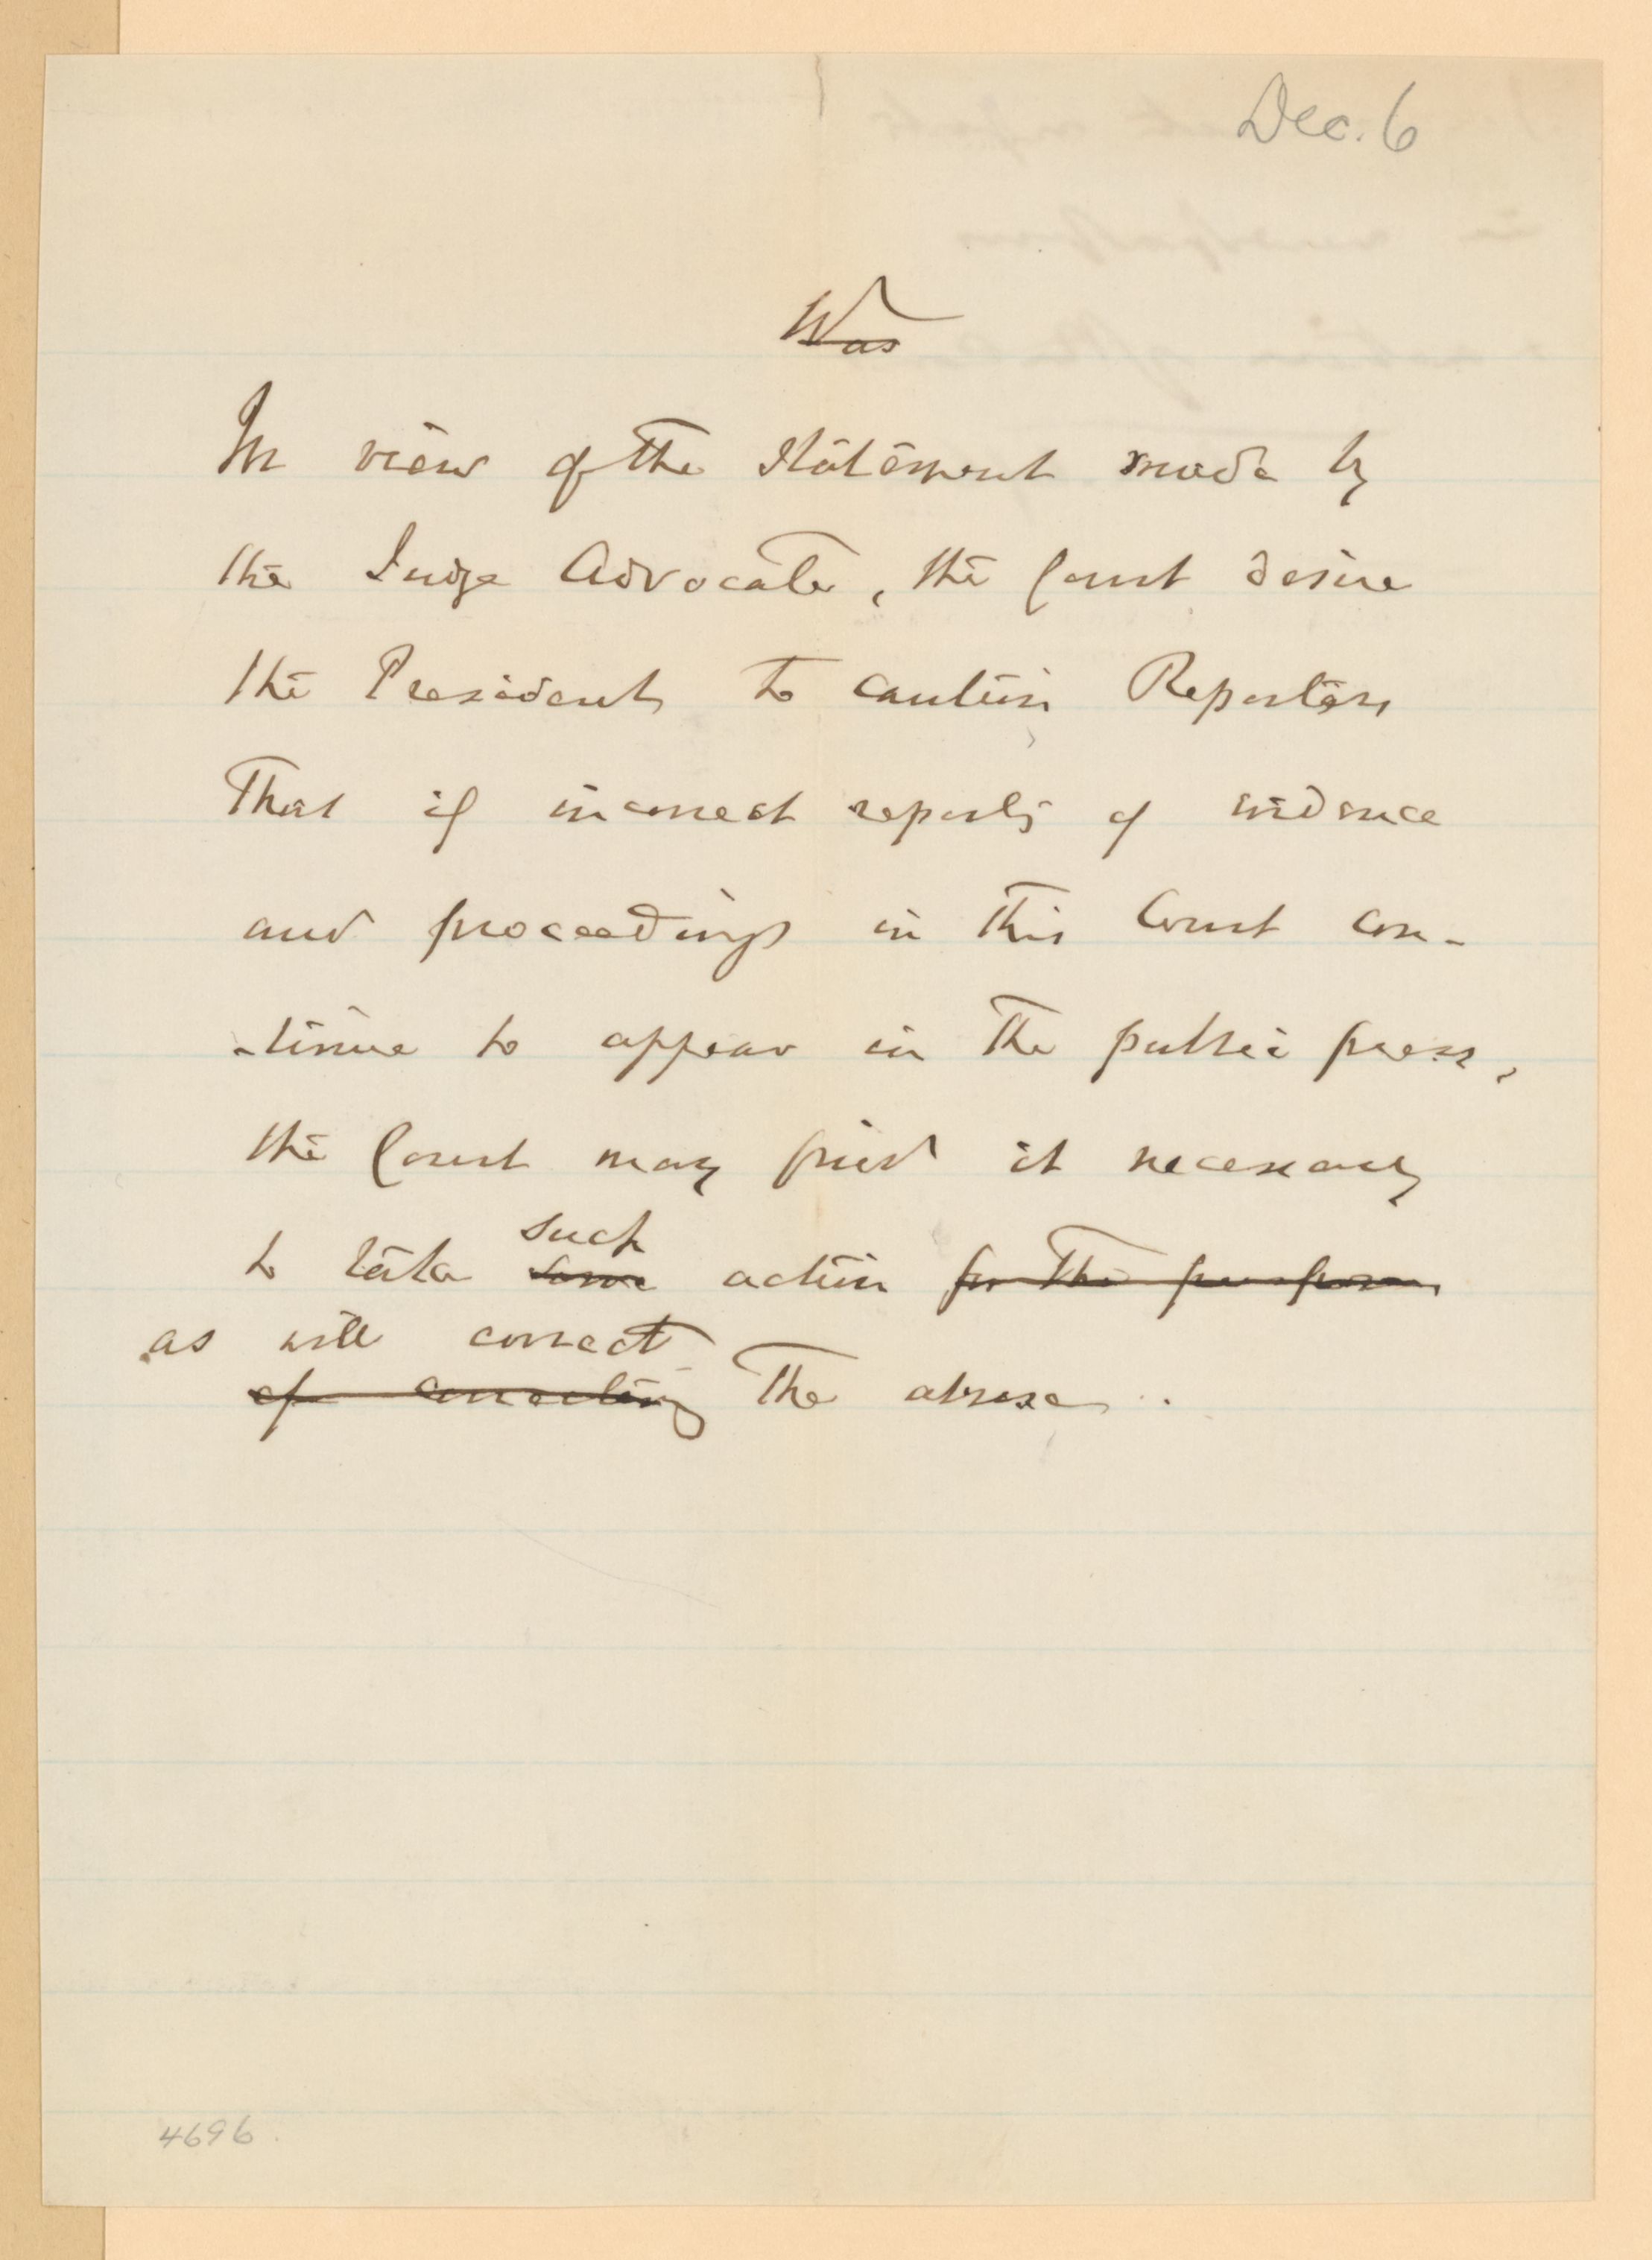 Dec. 6
Was
In view of the statement made by
the Judge Advocate, the Court desire
the President to caution Reporters
that if incorrect reports of evidence
and proceedings in this Court con-
-tinue to appear in the public press,
the Court may find it necessary
such
to take some action for the purpose
as will correct
of correcting the abuse.
4696.